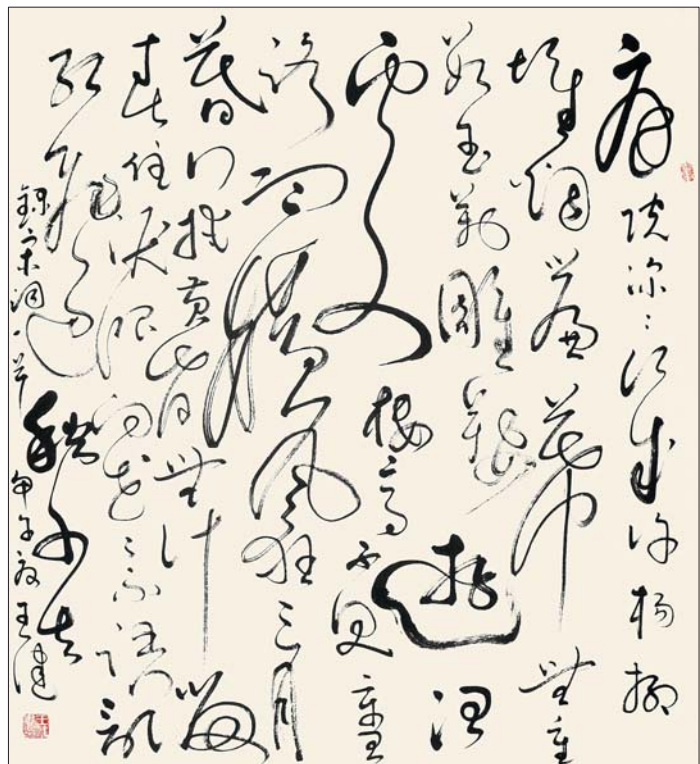 庭院深〻深幾許楊柳
堆煙簾幕無重
數玉勒雕鞍遊冶
處樓高不見章臺
路雨橫風狂三月
暮門掩黃昏無計留
春住淚眼問花〻不語亂
紅飛過鞦千去
錄宋詞一首 王健